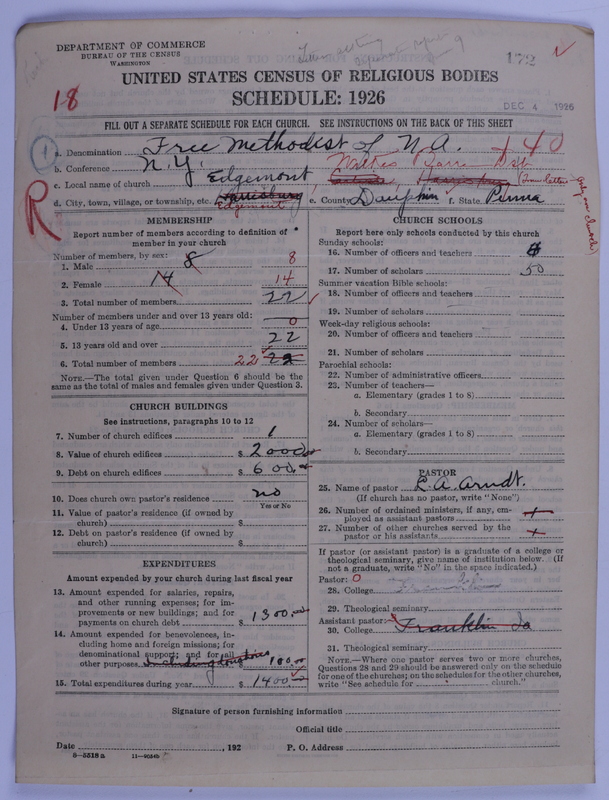 DEPARTMENT OF COMMERCE
BUREAU OF THE CENSUS
WASHINGTON
172
UNITED STATES CENSUS OF RELIGIOUS BODIES
18
SCHEDULE: 1926
DEC 4 1926
FILL OUT A SEPARATE SCHEDULE FOR EACH CHURCH. SEE INSTRUCTIONS ON THE BACK OF THIS SHEET
1 a. Denomination Free Methodist of N.A. +40
b. Conference N.Y. Wilkes Barre Dst
c. Local name of church Edgemont
(See letter - only one church)
R
d. City, town, village, or township, etc. Harrisburg Edgemont e. County Dauphin f. State Penna
MEMBERSHIP
Report number of members according to definition of member in your church
Number of members, by sex:
1. Male 8 8
2. Female 14 14
3. Total number of members 22
Number of members under and over 13 years old:
4. Under 13 years of age 0
5. 13 years old and over 22
6. Total number of members 22 22
NOTE.—The total given under Question 6 should be the same as the total of males and females given under Question 3.
CHURCH BUILDINGS
See instructions, paragraphs 10 to 12
7. Number of church edifices 1
8. Value of church edifices $ 2000.00
9. Debt on church edifices $ 600.00
10. Does church own pastor's residence no
Yes or No
11. Value of pastor's residence (if owned by church) $
12. Debt on pastor's residence (if owned by church) $
EXPENDITURES
Amount expended by your church during last fiscal year
13. Amount expended for salaries, repairs, and other running expenses; for improvements or new buildings; and for payments on church debt $ 1300.00
14. Amount expended for benevolences, including home and foreign missions; for denominational support; and for all other purposes 100.00
15. Total expenditures during year $ 1400.00
CHURCH SCHOOLS
Report here only schools conducted by this church
Sunday schools:
16. Number of officers and teachers
17. Number of scholars 50
Summer vacation Bible schools:
18. Number of officers and teachers
19. Number of scholars
Week-day religious schools:
20. Number of officers and teachers
21. Number of scholars
Parochial schools:
22. Number of administrative officers
23. Number of teachers—
a. Elementary (grades 1 to 8)
b. Secondary
24. Number of scholars—
a. Elementary (grades 1 to 8)
b. Secondary
PASTOR
25. Name of pastor L. A. Arndt.
(If church has no pastor, write "None")
26. Number of ordained ministers, if any, employed as assistant pastors +
27. Number of other churches served by the pastor or his assistants +
If pastor (or assistant pastor) is a graduate of a college or theological seminary, give name of institution below. (If not a graduate, write "No" in the space indicated.)
Pastor: 0
28. College Franklin
29. Theological seminary
Assistant pastor:
30. College Franklin Ia
31. Theological seminary
NOTE.—Where one pastor serves two or more churches, Questions 28 and 29 should be answered only on the schedule for one of the churches; on the schedules for the other churches, write "See schedule for church."
Signature of person furnishing information
Official title
Date , 192 P. O. Address
8—5518a 11—9054b